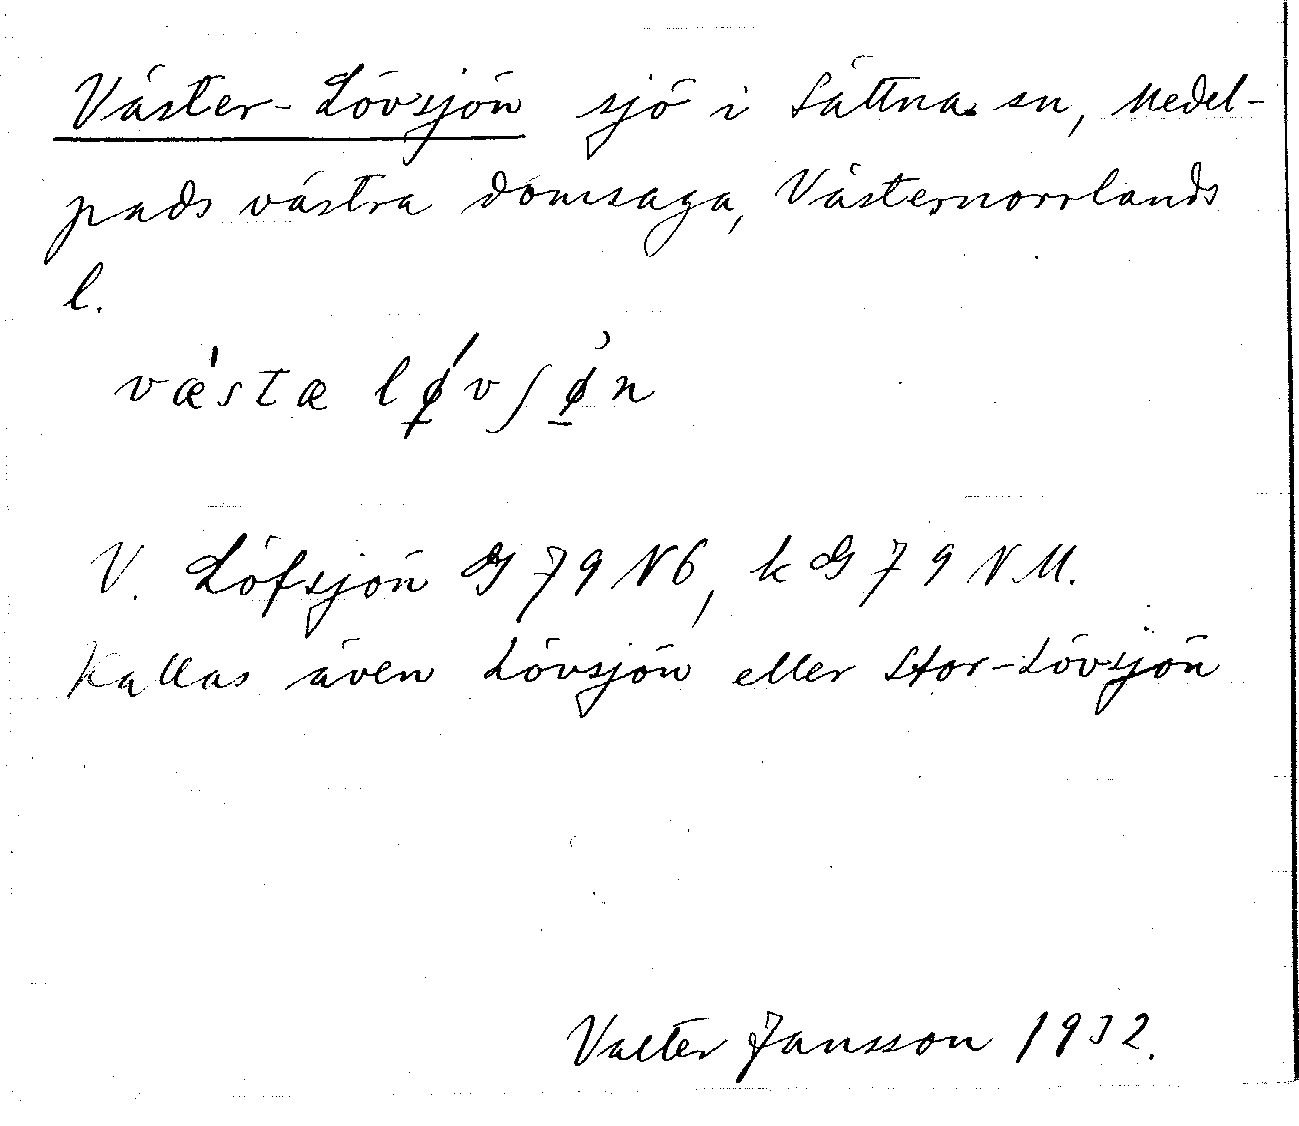 Väster-Lövsjön sjö i Sättna sn, Medel-
pads västra domsaga, Västernorrlands
l.
væ'stæ lǿ̱vʃø̱̓n
V. Löfsjön G 79 NÖ, k G 79 N.M.
Kallas även Lövsjön eller Stor-Lövsjön
Valter Jansson 1932.